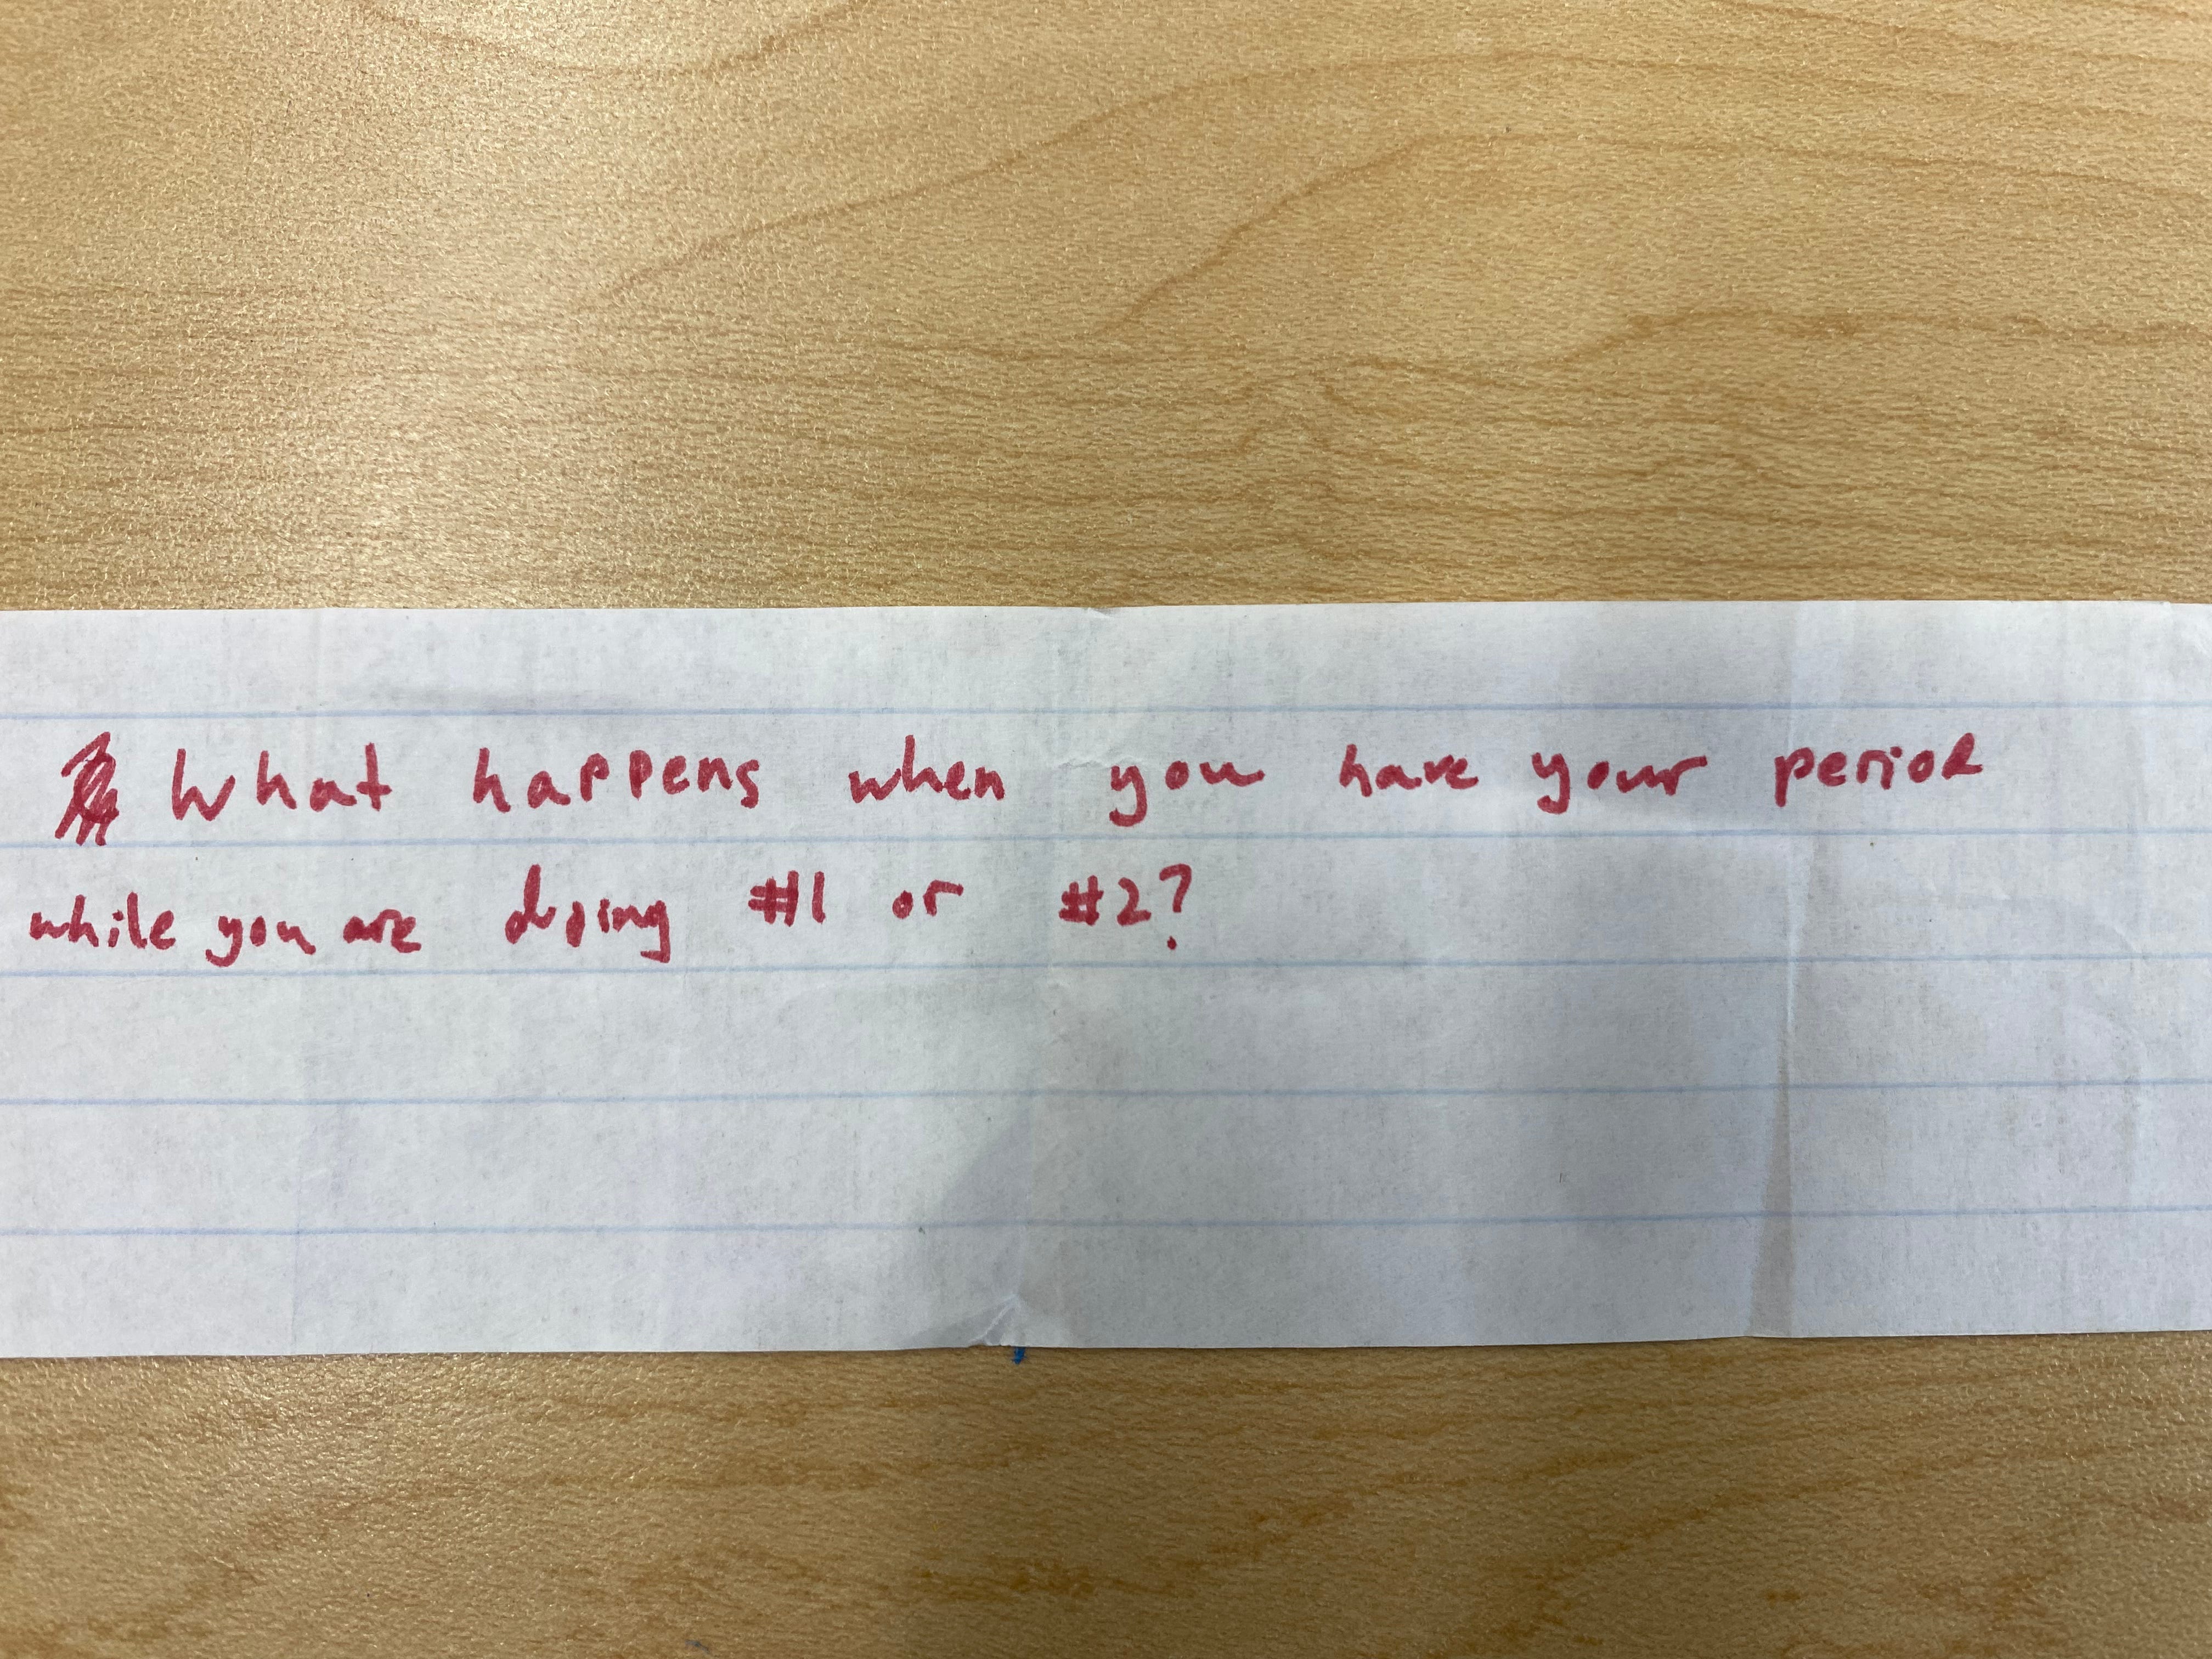 What happens when you have your period
while you are doing #1 or #2?